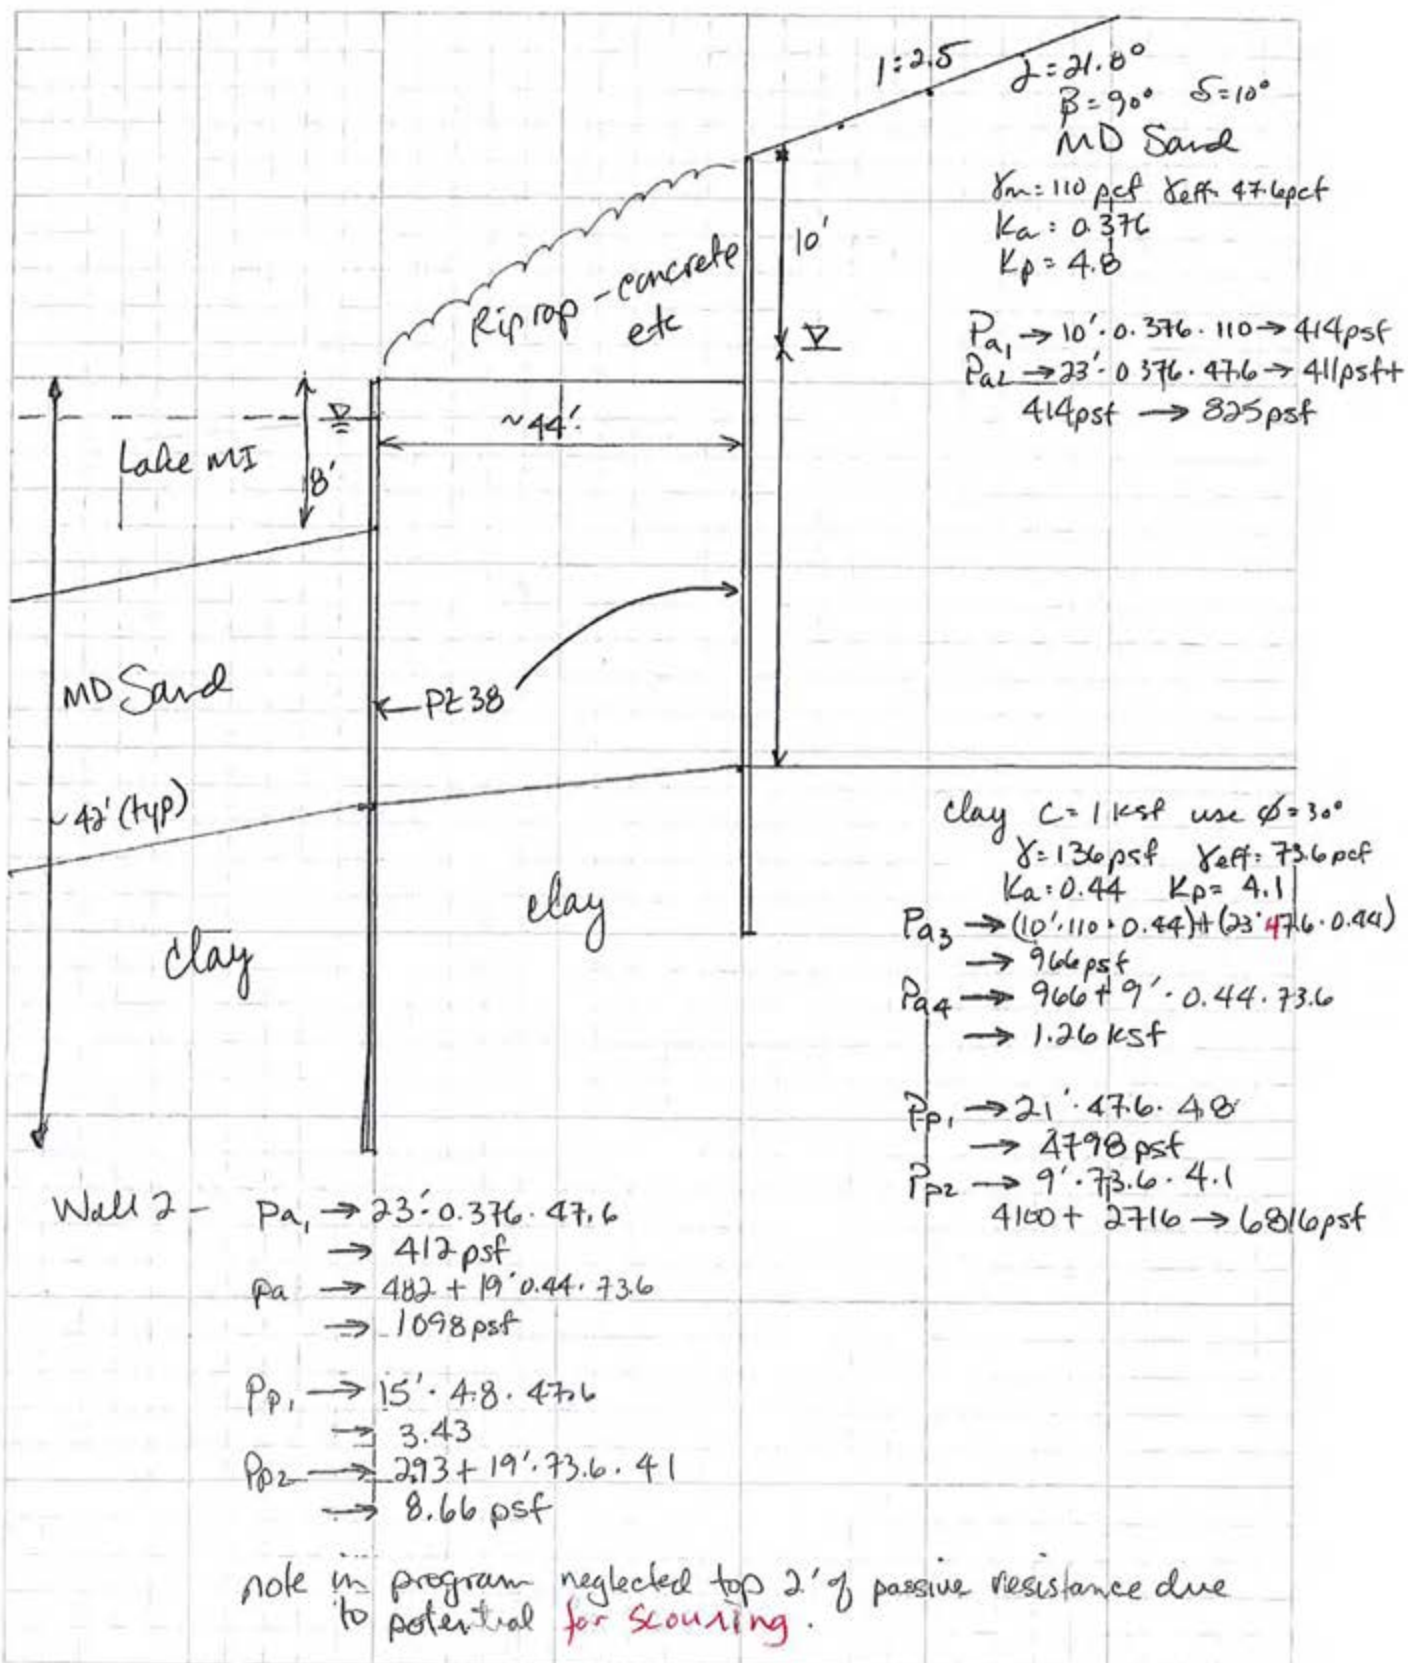 1:2.5
α=21.8°
β=90° δ=10°
MD Sand
γm=110 pcf γeff. 47.6pcf
Ka: 0.376
Kp= 4.8
10'
Rip rap - concrete
etc
Pa1 → 10'·0.376·110 → 414psf
Pa2 → 23'·0.376·47.6 → 411psf+
414psf → 825psf
~44'
Lake MI
8'
MD Sand
PZ38
~42' (typ)
clay
clay
clay C=1 ksf use ø=30°
γ=136psf γeff= 73.6pcf
Ka: 0.44 Kp= 4.1
Pa3 → (10'·110·0.44)+(23'·47.6·0.44)
→ 966psf
Pa4 → 966+9'·0.44·73.6
→ 1.26 ksf
Pp1 → 21'·47.6·4.8
→ 4798psf
Pp2 → 9'·73.6·4.1
4100+ 2716 → 6816psf
Wall 2 - Pa1 → 23'·0.376·47.6
→ 412psf
Pa → 482 + 19'0.44.73.6
→ 1098psf
Pp1 → 15'·4.8·47.6
→ 3.43
Pp2 → 2.93+19'·73.6.41
→ 8.66 psf
note in program neglected top 2' of passive resistance due
to potential for scouring.